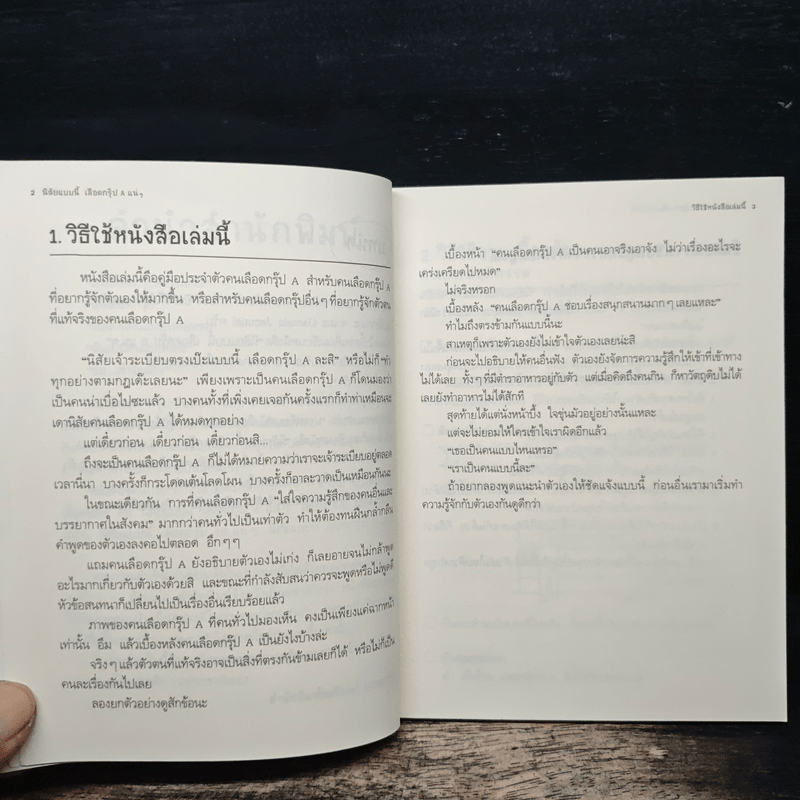 2 นิสัยแบบนี้ เลือดกรุ๊ป A แน่ๆ
1. วิธีใช้หนังสือเล่มนี้
หนังสือเล่มนี้คือคู่มือประจำตัวคนเลือดกรุ๊ป A สำหรับคนเลือดกรุ๊ป A
ที่อยากรู้จักตัวเองให้มากขึ้น หรือสำหรับคนเลือดกรุ๊ปอื่นๆ ที่อยากรู้จักตัวตน
ที่แท้จริงของคนเลือดกรุ๊ป A
“นิสัยเจ้าระเบียบตรงเป๊ะแบบนี้ เลือดกรุ๊ป A ละสิ” หรือไม่ก็ “ทำ
ทุกอย่างตามกฎเด๊ะเลยนะ” เพียงเพราะเป็นคนเลือดกรุ๊ป A ก็โดนมองว่า
เป็นคนน่าเบื่อไปซะแล้ว บางคนทั้งที่เพิ่งเคยเจอกันครั้งแรกก็ทำท่าเหมือนจะ
เดานิสัยคนเลือดกรุ๊ป A ได้หมดทุกอย่าง
แต่เดี๋ยวก่อน เดี๋ยวก่อน เดี๋ยวก่อนสิ...
ถึงจะเป็นคนเลือดกรุ๊ป A ก็ไม่ได้หมายความว่าเราจะเจ้าระเบียบอยู่ตลอด
เวลานี่นา บางครั้งก็กระโดดเต้นโลดโผน บางครั้งก็อาละวาดเป็นเหมือนกันนะ
ในขณะเดียวกัน การที่คนเลือดกรุ๊ป A “ใส่ใจความรู้สึกของคนอื่นและ
บรรยากาศในสังคม” มากกว่าคนทั่วไปเป็นเท่าตัว ทำให้ต้องทนฝืนกล้ำกลืน
คำพูดของตัวเองลงคอไปตลอด ฮึกๆๆ
แถมคนเลือดกรุ๊ป A ยังอธิบายตัวเองไม่เก่ง ก็เลยอายจนไม่กล้าพูด
อะไรมากเกี่ยวกับตัวเองด้วยสิ และขณะที่กำลังสับสนว่าควรจะพูดหรือไม่พูดดี
หัวข้อสนทนาก็เปลี่ยนไปเป็นเรื่องอื่นเรียบร้อยแล้ว
ภาพของคนเลือดกรุ๊ป A ที่คนทั่วไปมองเห็น คงเป็นเพียงแค่ฉากหน้า
เท่านั้น อืม แล้วเบื้องหลังคนเลือดกรุ๊ป A เป็นยังไงบ้างล่ะ
จริงๆ แล้วตัวตนที่แท้จริงอาจเป็นสิ่งที่ตรงกันข้ามเลยก็ได้ หรือไม่ก็เป็น
คนละเรื่องกันไปเลย
ลองยกตัวอย่างดูสักข้อนะ
วิธีใช้หนังสือเล่มนี้ 3
เบื้องหน้า “คนเลือดกรุ๊ป A เป็นคนเอาจริงเอาจัง ไม่ว่าเรื่องอะไรจะ
เคร่งเครียดไปหมด”
ไม่จริงหรอก
เบื้องหลัง “คนเลือดกรุ๊ป A ชอบเรื่องสนุกสนานมากๆ เลยแหละ”
ทำไมถึงตรงข้ามกันแบบนี้นะ
สาเหตุก็เพราะตัวเองยังไม่เข้าใจตัวเองเลยน่ะสิ
ก่อนจะไปอธิบายให้คนอื่นฟัง ตัวเองยังจัดการความรู้สึกให้เข้าที่เข้าทาง
ไม่ได้เลย ทั้งๆ ที่มีตำราอาหารอยู่กับตัว แต่เมื่อคิดถึงคนกิน ก็หาวัตถุดิบไม่ได้
เลยยังทำอาหารไม่ได้สักที
สุดท้ายได้แต่นั่งหน้าบึ้ง ใจขุ่นมัวอยู่อย่างนั้นแหละ
แต่จะไม่ยอมให้ใครเข้าใจเราผิดอีกแล้ว
“เธอเป็นคนแบบไหนเหรอ”
“เราเป็นคนแบบนี้ละ”
ถ้าอยากลองพูดแนะนำตัวเองให้ชัดแจ้งแบบนี้ ก่อนอื่นเรามาเริ่มทำ
ความรู้จักกับตัวเองกันดูดีกว่า